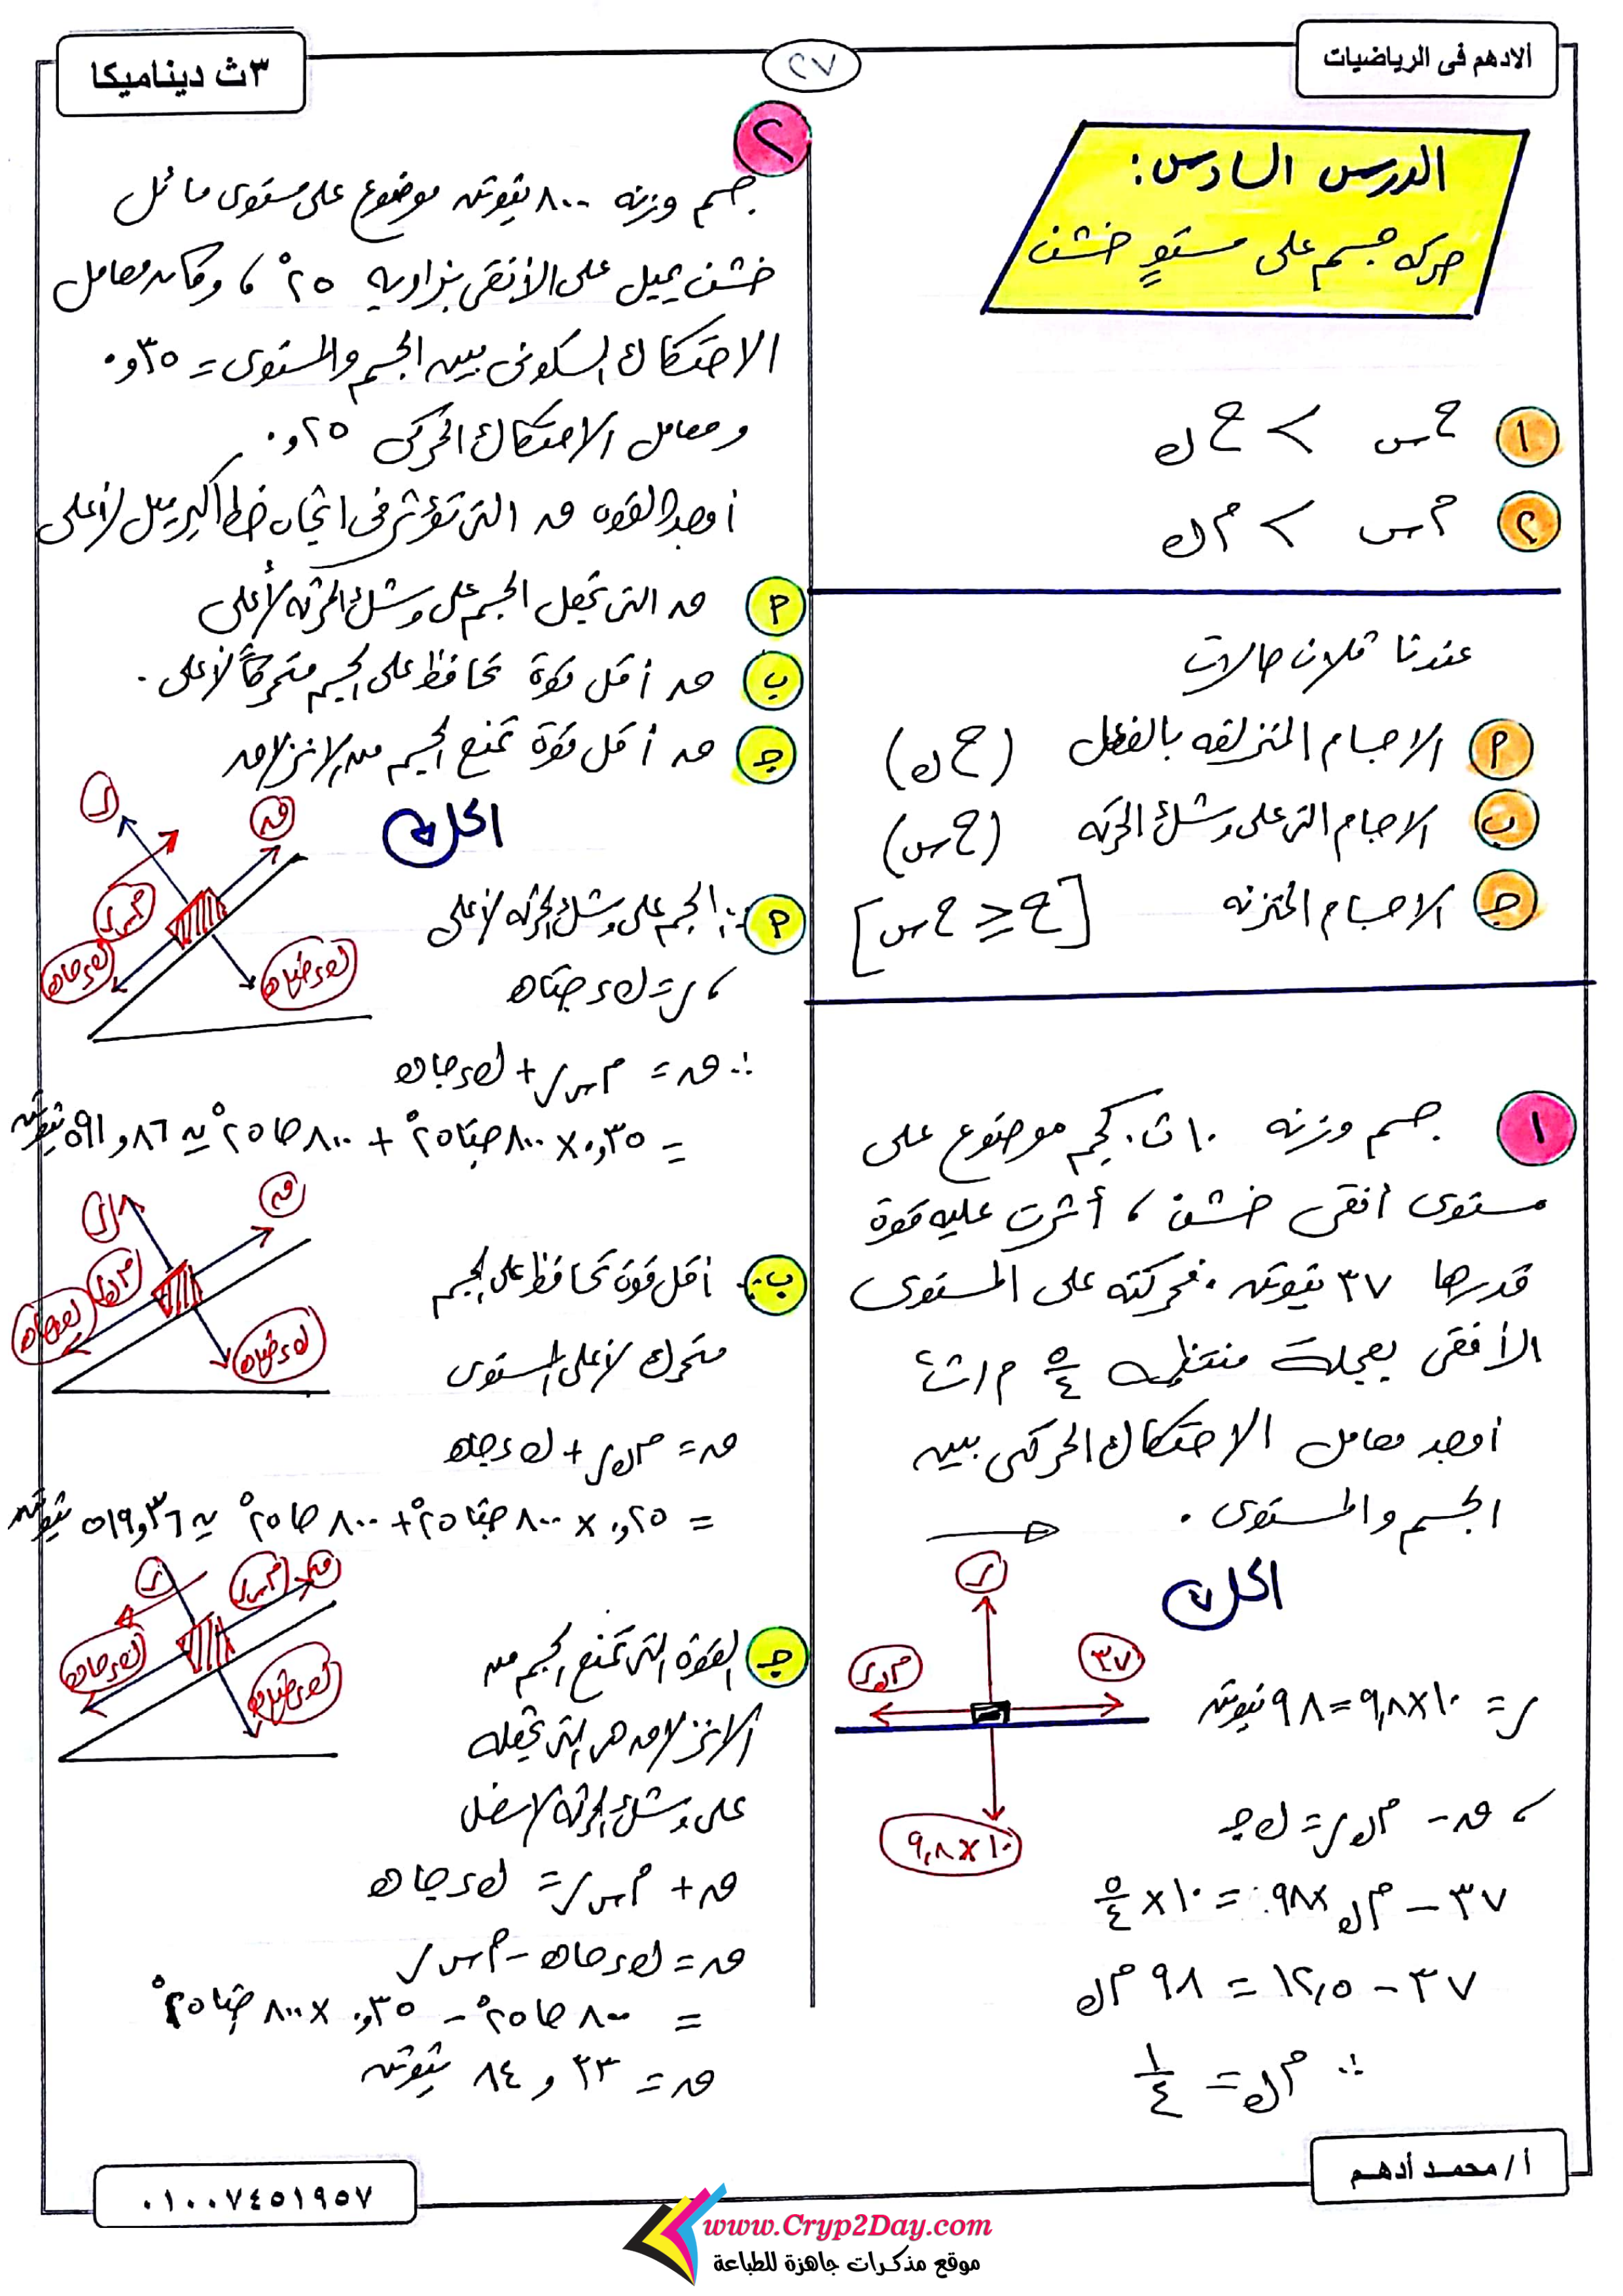 الادهم فى الرياضيات
٢٧
٣ث ديناميكا
الدرس السادس:
حركه جسم على مستوٍ خشن
١ ح س > ح ك
٢ م س > م ك
عندنا ثلاث حالات
٩ الاجسام المنزلقه بالفعل (ح ك)
ب الاجسام التى على وشك الحركه (ح س)
جـ الاجسام المتزنه [ح ≤ ح س]
١ جسم وزنه ١٠ ث. كجم موضوع على
مستوى افقى خشن ، أثرت عليه قوة
قدرها ٣٧ نيوتن . فحركته على المستوى
الأفقى بعجلة منتظمه ٥/٤ م/ث٢
اوجد معامل الاحتكاك الحركى بين
الجسم والمستوى .
الحل
ر
م ك ر
٣٧
٩,٨×١٠
ر = ٩,٨×١٠ = ٩٨ نيوتن
، ق - م ك ر = ك جـ
٣٧ - م ك × ٩٨ = ١٠ × ٥/٤
٣٧ - ١٢,٥ = ٩٨ م ك
∴ م ك = ١/٤
٢
جسم وزنه ٨٠٠ نيوتن موضوع على مستوى مائل
خشن يميل على الأفقى بزاويه ٢٥° ، وكان معامل
الاحتكاك السكونى بين الجسم والمستوى = ٣٥و٠
ومعامل الاحتكاك الحركى ٢٥و٠
أوجد القوه ق التى تؤثر فى اتجاه خط اكبر ميل لأعلى
٩ ق التى تجعل الجسم على وشك الحركه لأعلى
ب ق أقل قوة تحافظ على الجسم متحركاً لأعلى .
جـ ق أقل قوة تمنع الجسم من الانزلاق
الحل
ر
ق
م س ر
ك ء حاه
ك ء حتاه
٩ ∵ الجسم على وشك الحركه لأعلى
، ر = ك ء حتاه
∴ ق = م س ر + ك ء حاه
= ٠,٣٥ × ٨٠٠ حتا ٢٥° + ٨٠٠ حا ٢٥° ≃ ٨٦و٥٩١ نيوتن
ر
ق
م ك ر
ك ء حاه
ك ء حتاه
ب أقل قوة تحافظ على الجسم
متحرك لأعلى المستوى
ق = م ك ر + ك ء حاه
= ٠,٢٥ × ٨٠٠ حتا ٢٥° + ٨٠٠ حا ٢٥° ≃ ٣٦و٥١٩ نيوتن
ر
م س ر
ق
ك ء حاه
ك ء حتاه
جـ القوة التى تمنع الجسم من
الانزلاق هى التى تجعله
على وشك الحركة لاسفل
ق + م س ر = ك ء حاه
ق = ك ء حاه - م س ر
= ٨٠٠ حا ٢٥° - ٠,٣٥ × ٨٠٠ حتا ٢٥°
ق = ٣٣ و ٨٤ نيوتن
أ / محمد أدهم
٠١٠٠٧٤٥١٩٥٧
www.Cryp2Day.com
موقع مذكرات جاهزة للطباعة